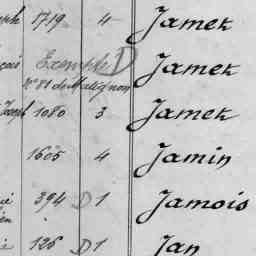 1719 4 Jamek
Exempté D Jamek
Nº 81 de Matignon
Joseph 1080 3 Jamek
1605 4 Jamin
394 D 1 Jamois
126 D 1 Jan